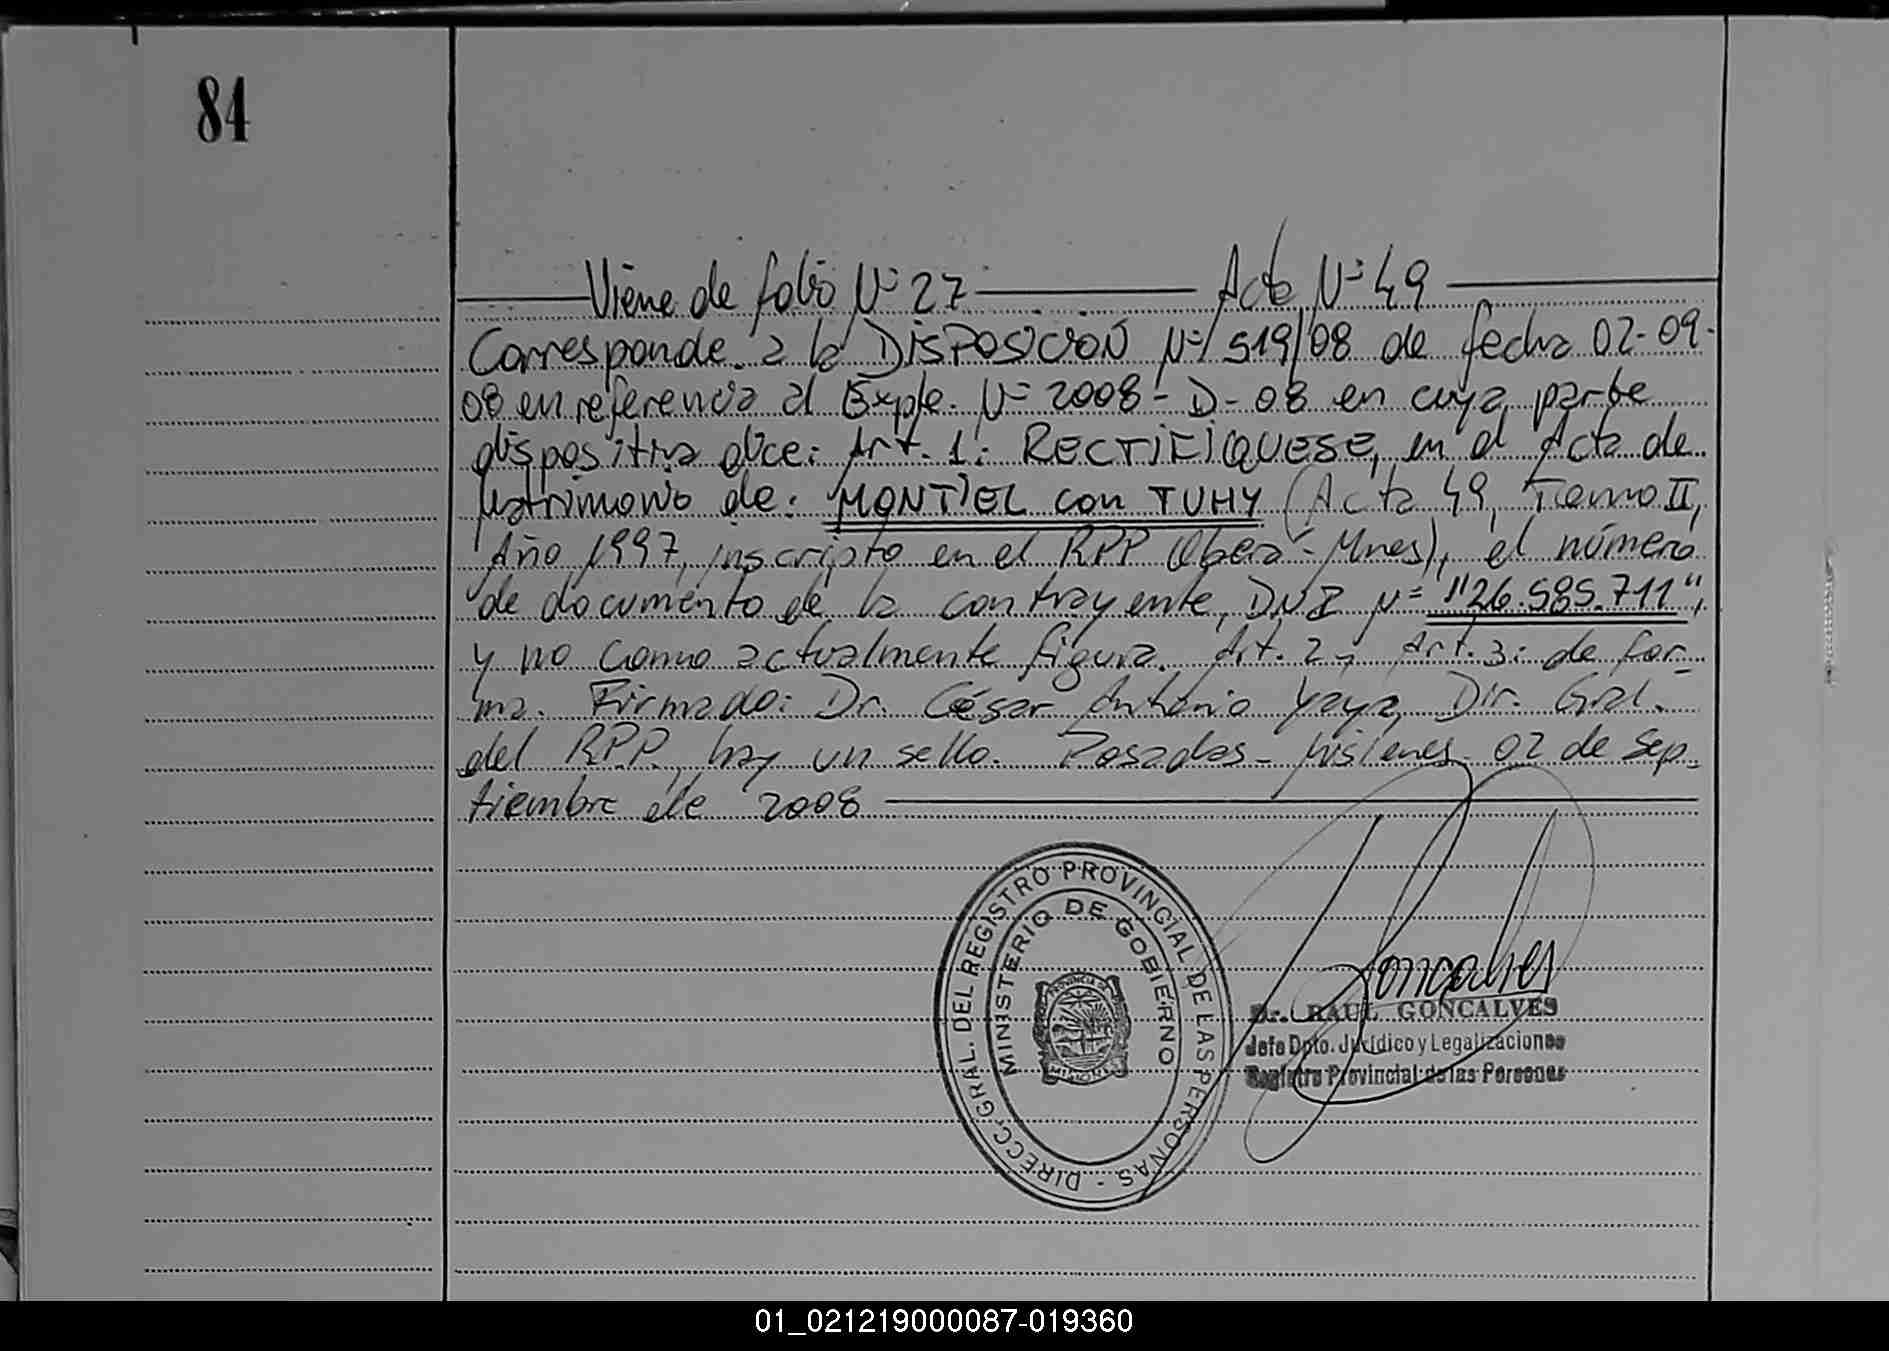 84
Viene de folio Nº 27 Acta Nº 49
Corresponde a la DISPOSICION Nº 519/08 de fecha 02-09-
08 en referencia al Expte. Nº 2008-D-08 en cuya parte
dispositiva dice: Art. 1: RECTIFIQUESE, en el Acta de
Matrimonio de: MONTIEL con TUHY (Acta 49, Tomo II,
Año 1997, inscripto en el RPP Oberá-Mnes), el número
de documento de la contrayente, DNI Nº "26.585.711",
y no como actualmente figura. Art. 2 y Art. 3: de for-
ma. Firmado: Dr. César Antonio Yaya, Dir. Gral.
del R.P.P. hay un sello. Posadas - Misiones 02 de Sep-
tiembre de 2008
DIRECC. GRAL. DEL REGISTRO PROVINCIAL DE LAS PERSONAS -
MINISTERIO DE GOBIERNO
PROVINCIA DE
MISIONES
Goncalves
Dr. RAUL GONCALVES
Jefe Dpto. Jurídico y Legalizaciones
Registro Provincial de las Personas
01_021219000087-019360